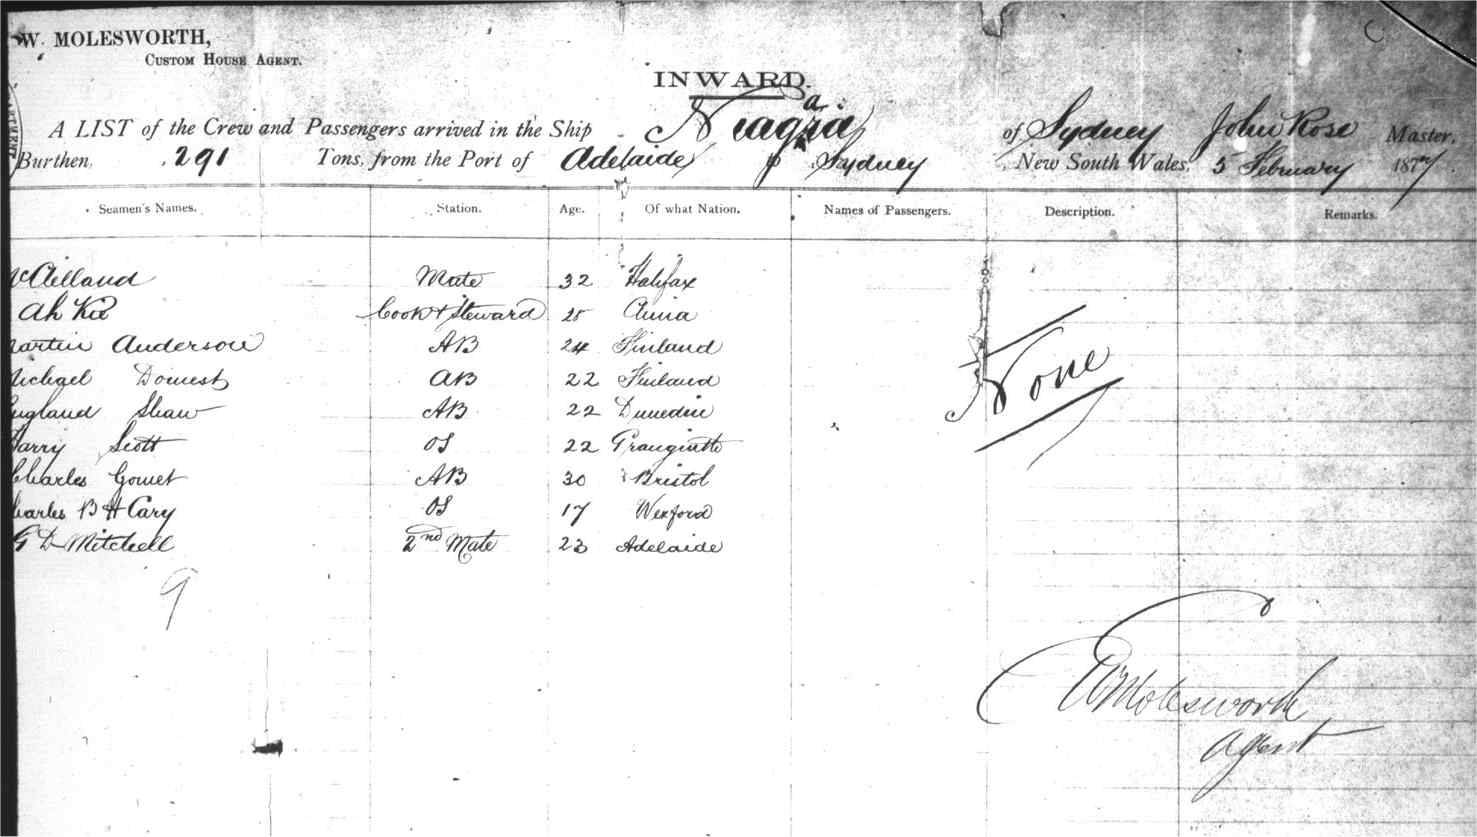 W. MOLESWORTH,
CUSTOM HOUSE AGENT.
INWARD.
A LIST of the Crew and Passengers arrived in the Ship Niagra a of Sydney John Rose Master,
Burthen 291 Tons, from the Port of Adelaide Sydney New South Wales, 5 February 1877
Seamen's Names. Station. Age. Of what Nation. Names of Passengers. Description. Remarks.
McClelland Mate 32 Halifax
Ah Ka Cook & Steward China
Martin Anderson AB 24 Finland
Michael AB 22 Finland
England Shaw AB 22 Dunedin
Harry Scott OS 22
Charles AB 30 Bristol
Charles B H Cary OS 17 Wexford
G D Mitchell 2nd Mate 23 Adelaide
None
9
W Molesworth
Agent